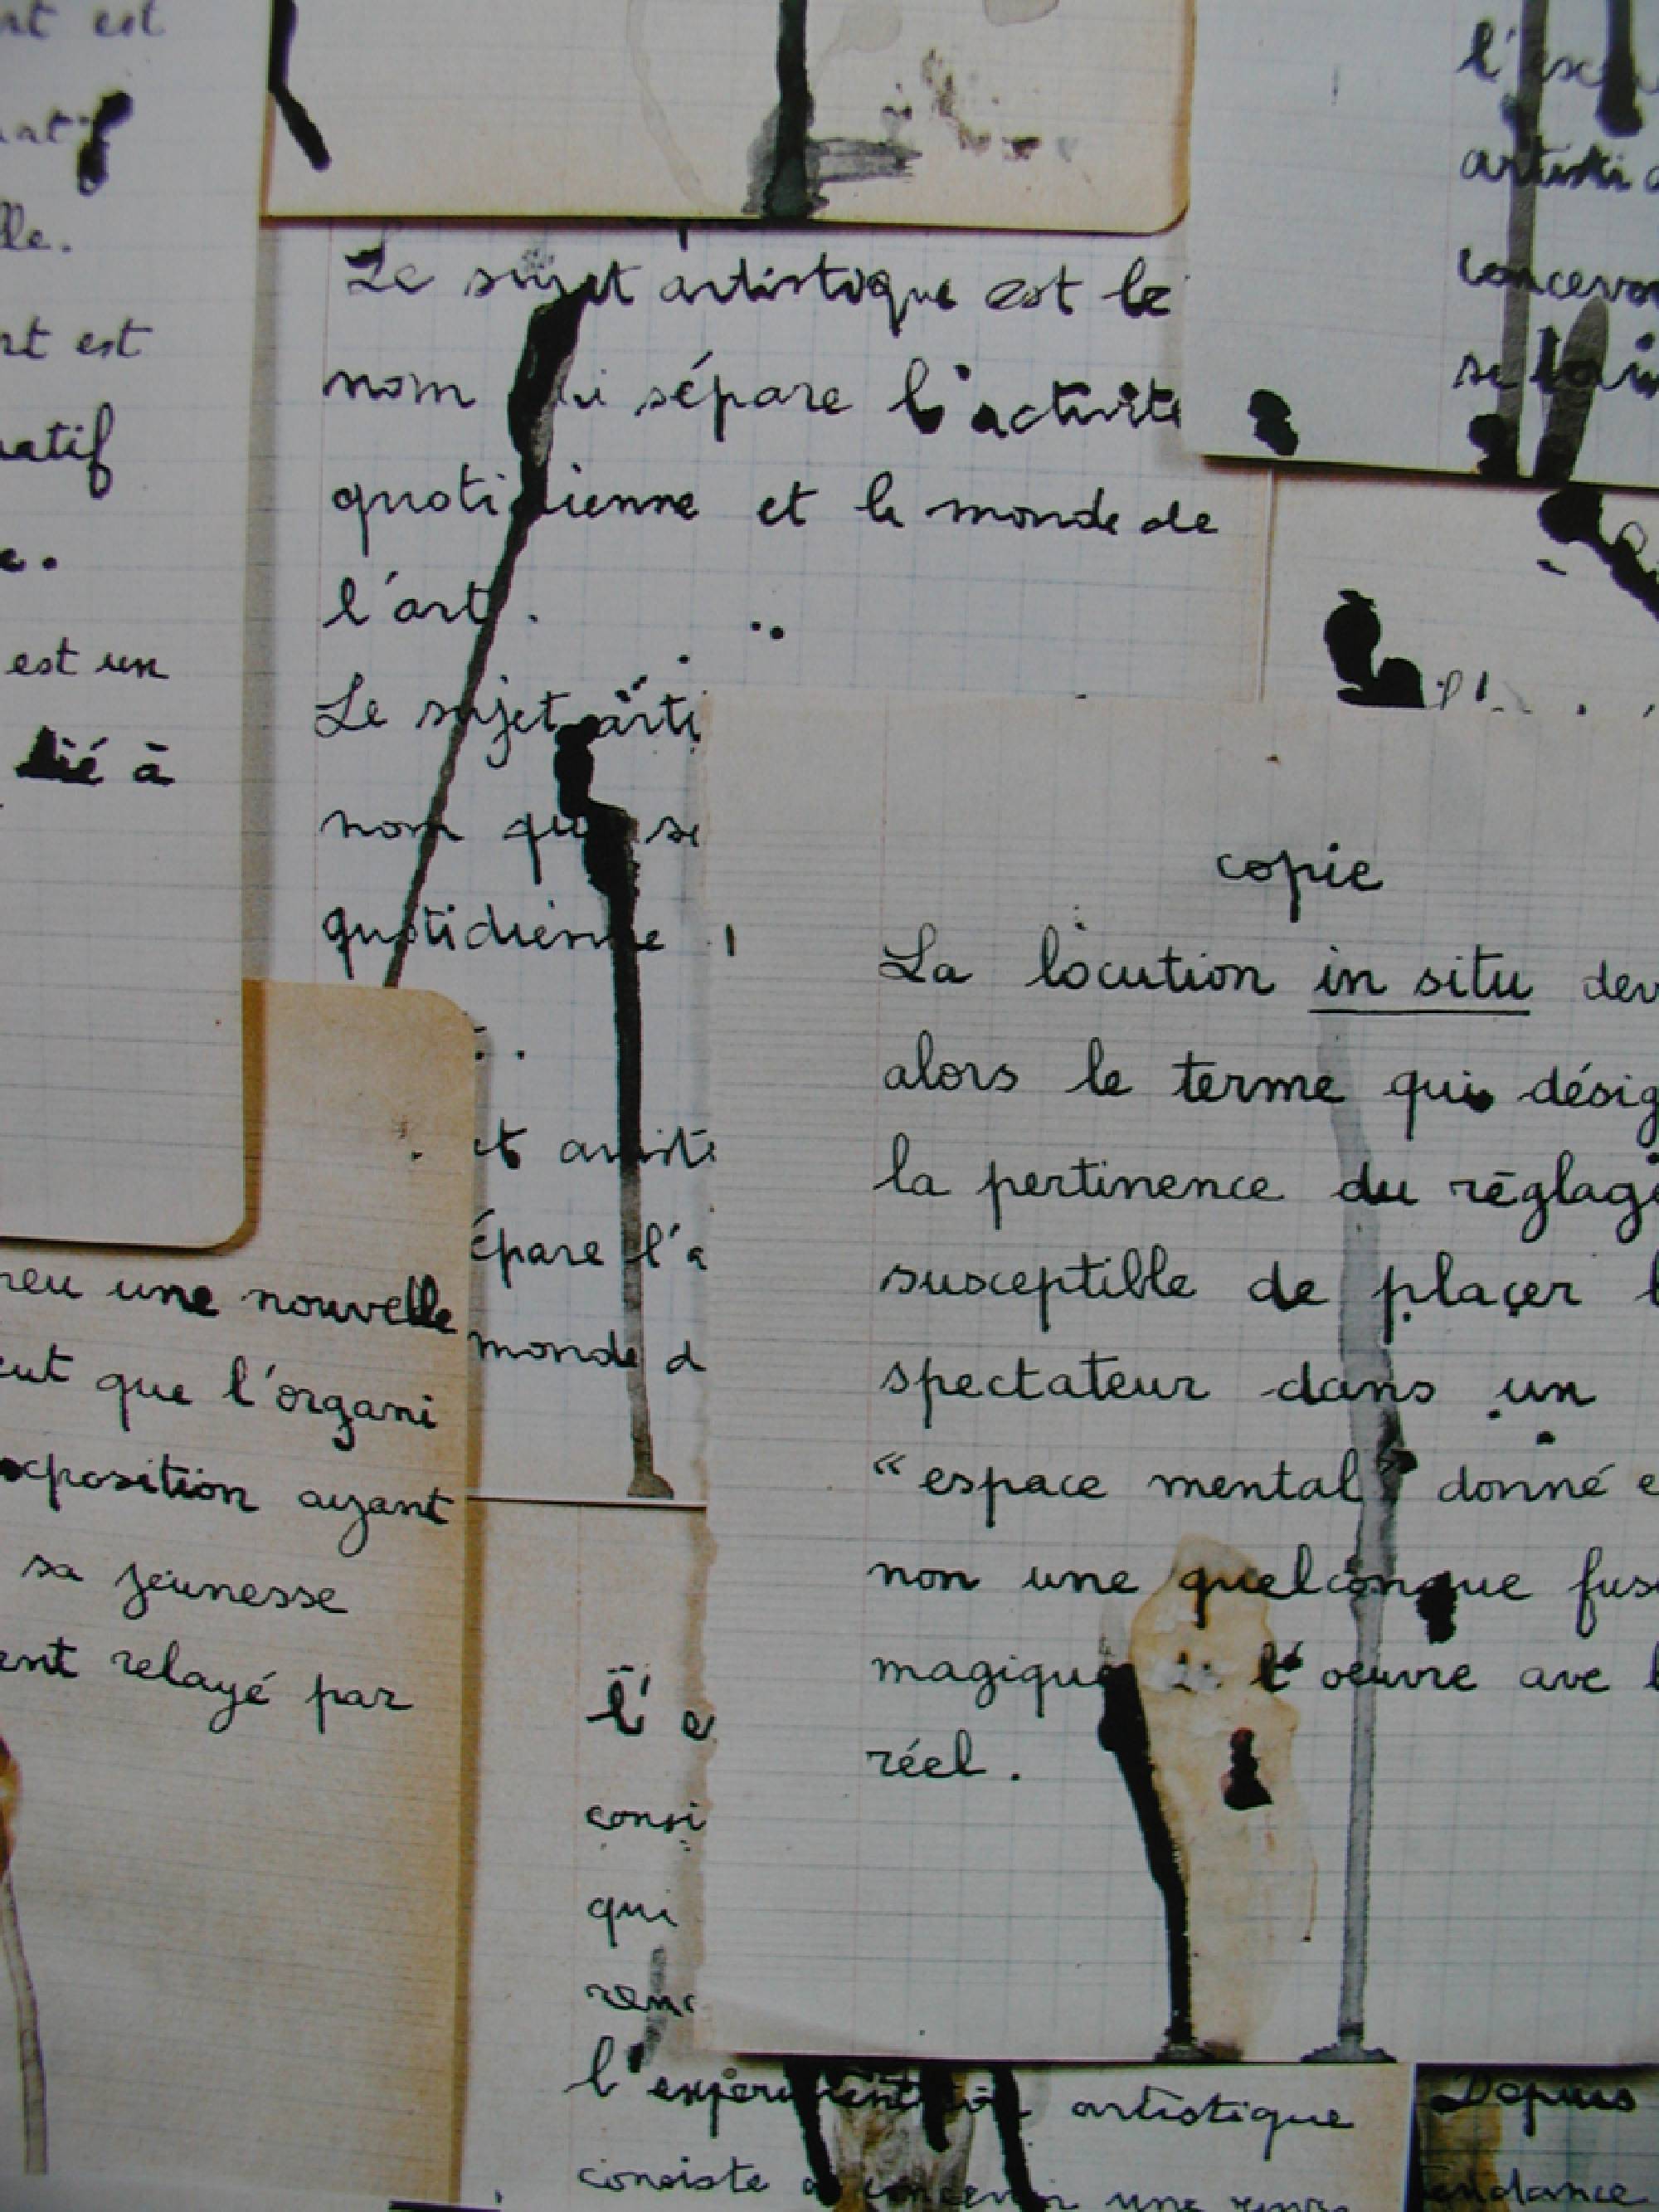 est
lle.
est
est un
lié à
Le sujet artistique est le
nom sépare l'activité
quotidienne et le monde de
l'art.
Le sujet arti
nom qui sé
quotidienne
et artisti
épare l'a
monde d
l'
artisti
concevo
se
une nouvelle
que l'organi
xposition ayant
sa jeunesse
ent relayé par
copie
La locution in situ dev
alors le terme qui désig
la pertinence du réglage
susceptible de plaçer l
spectateur dans un
“espace mental” donné e
non une quelconque fusi
magique de l'oeuvre ave l
réel.
l'e
consi
qui
renc
l'expérimentation artistique
consiste à concevoir une
Depuis
tendance